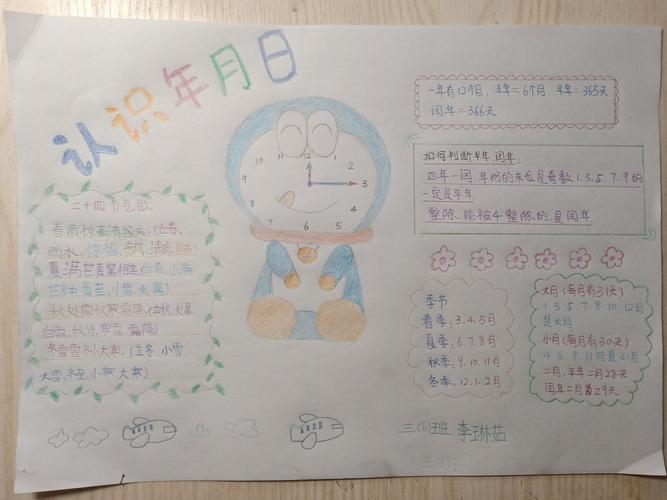 认识年月日
一年有12个月, 半年=6个月. 平年=365天
闰年=366天
如何判断平年、闰年:
四年一闰, 年份的末位是奇数1.3.5.7.9的
一定是平年
整除、能被4整除的, 是闰年
二十四节气歌
春雨惊春清谷天, (立春、
雨水, 惊蛰, 春分, 清明, 谷雨)
夏满芒夏暑相连(立夏、小满
芒种, 夏至, 小暑, 大暑)
秋处露秋寒霜降, (立秋, 处暑,
白露, 秋分, 寒露, 霜降)
冬雪雪冬小大寒, (立冬、小雪、
大雪、冬至, 小寒, 大寒)
11 12 1
10 2
9 3
8 4
7 6 5
季节
春季: 3.4.5月
夏季: 6.7.8月
秋季: 9.10.11月
冬季: 12.1.2月
大月(每月有31天)
1.3.5.7.8.10 12月
是大月
小月(每月有30天)
4.6.9.11月是小月
二月, 平年二月28天
闰年二月29天
三(6)班 李琳茹